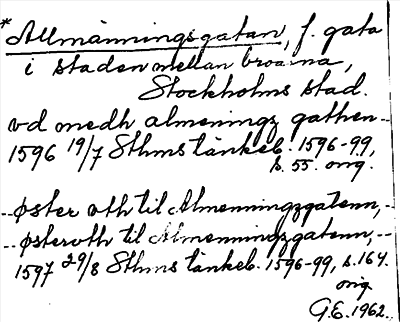 * Allmänningsgatan, f. gata
i staden mellan broarna,
Stockholms stad.
vd medh almeningz gathen--
1596 19/7 Sthms tänkeb. 1596-99,
s. 55. orig.
--øster vth til Almenningzgatenn,--
--østervth til Almenningzgatenn,--
1597 29/8 Sthms tänkeb. 1596-99, s. 164.
orig.
G.E. 1962.